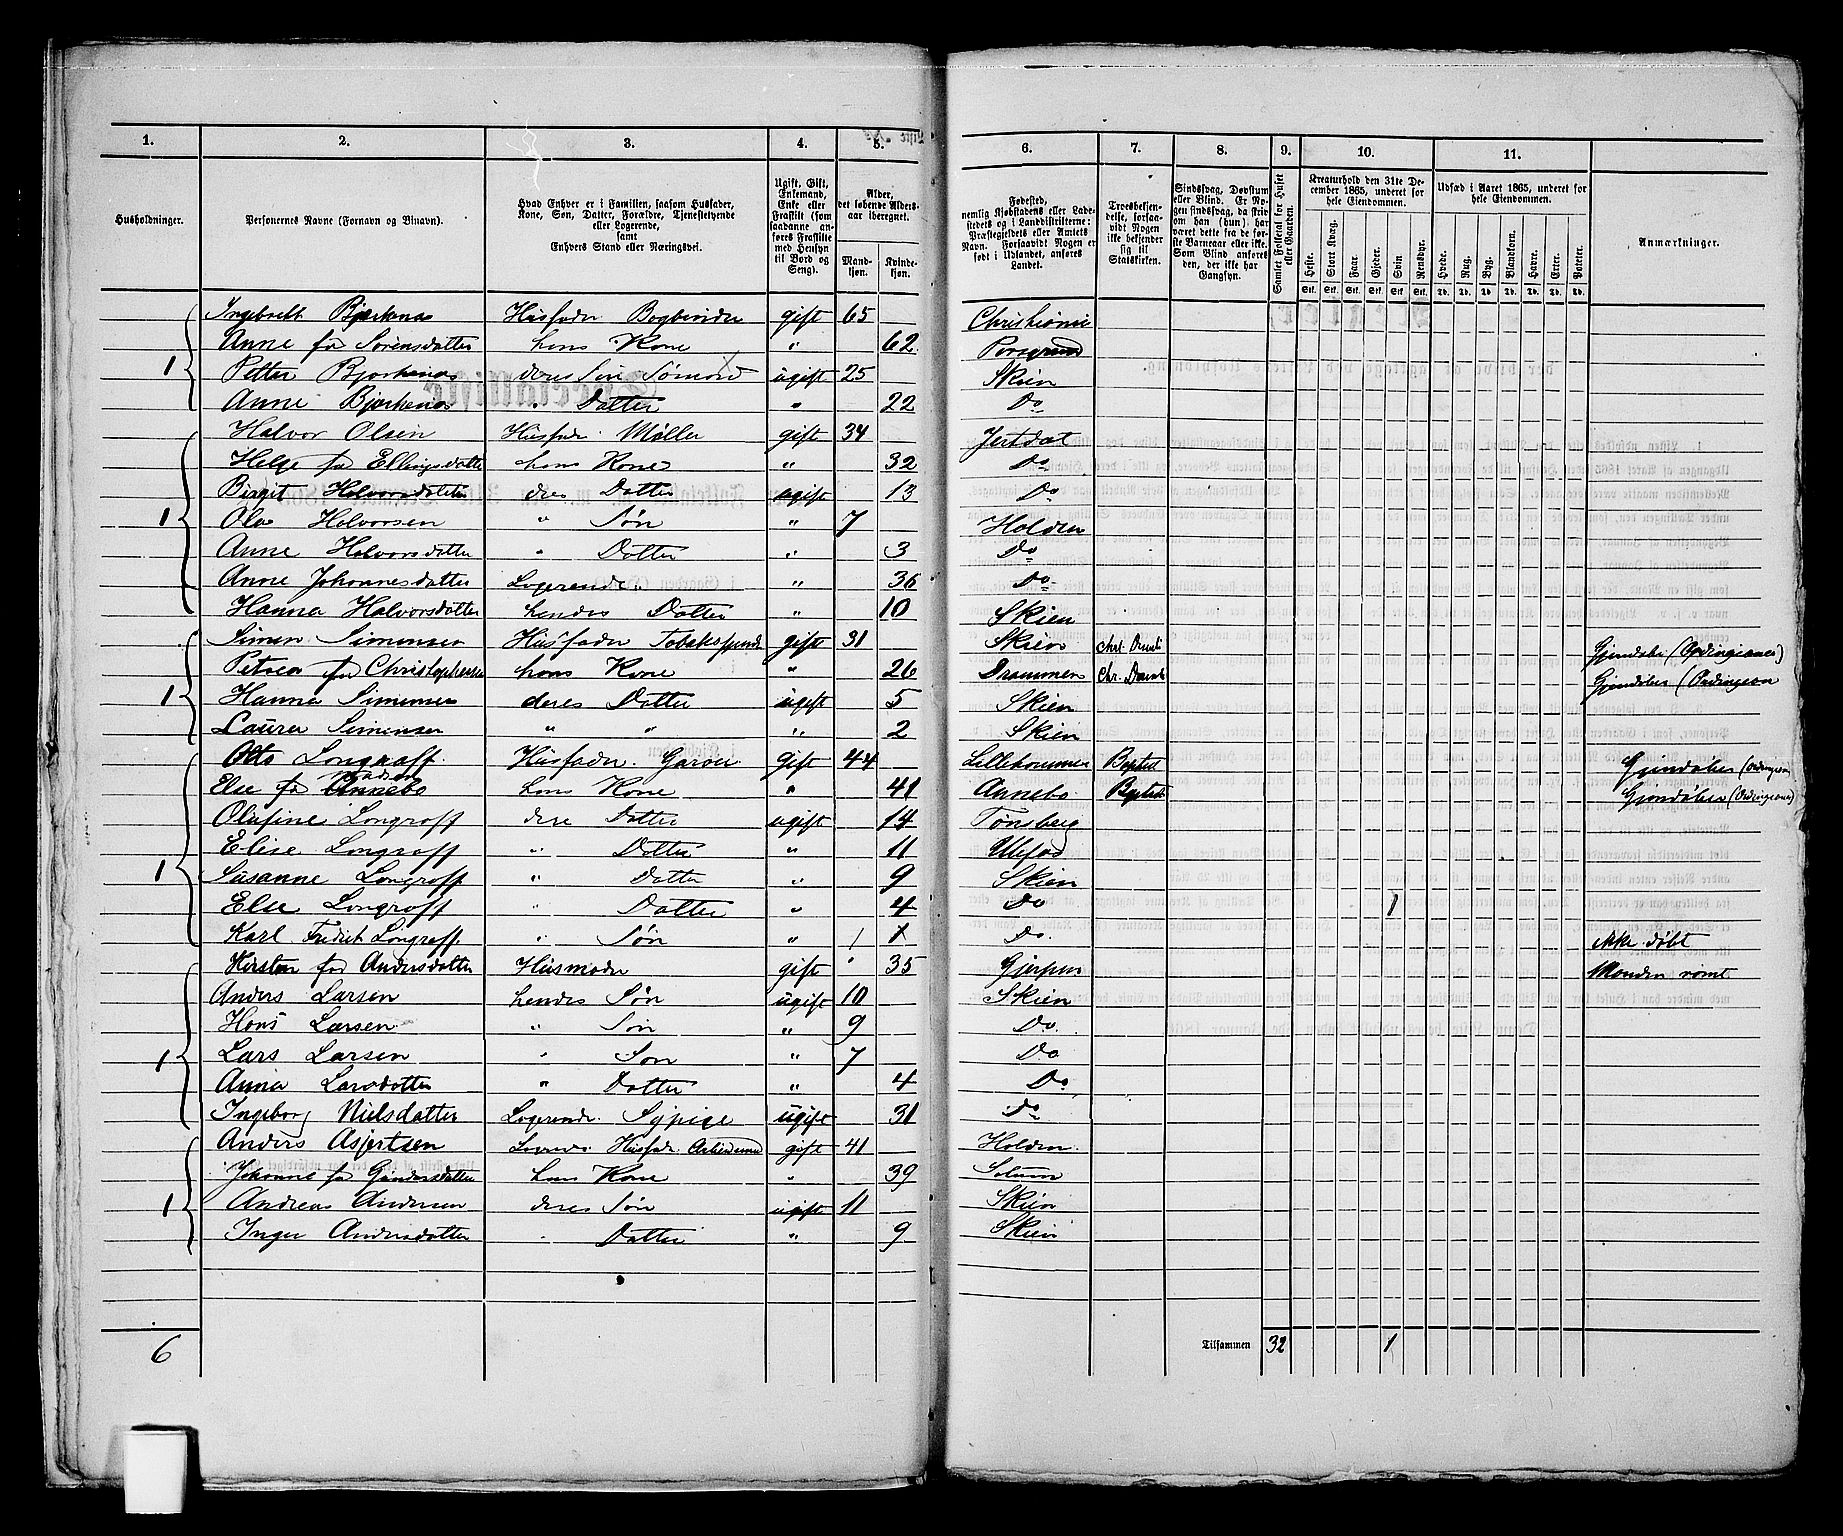 1. 2. 3. 4. 5. 6. 7. 8. 9. 10. 11.
Husholdninger.
Personernes Navne (Fornavn og Binavn).
Hvad Enhver er i Familien, saasom Husfader, Kone, Søn, Datter, Forældre, Tjenestetyende eller Logerende, samt Enhvers Stand eller Næringsvei.
Ugift, Gift, Enkemand, Enke eller Fraskilt (som saadanne anføres Fraskilte med Hensyn til Bord og Seng).
Alder, det løbende Aldersaar iberegnet.
Mandkjøn. Kvindekjøn.
Fødested, nemlig Kjøbstadens eller Ladestedets og i Landdistrikterne: Præstegjeldets eller Amtets Navn. Forsaavidt Nogen er født i Udlandet, anføres Landet.
Troesbekjendelse, forsaavidt Nogen ikke bekjender sig til Statskirken.
Sindssvag, Døvstum eller Blind. Er Nogen sindssvag, da skrives om han (hun) har været dette fra de første Barneaar eller ikke. Som Blind anføres den, der ikke har Gangsyn.
Samlet Folketal for Huset eller Gaarden.
Kreaturhold den 31te December 1865, underet for hele Eiendommen.
Heste. Stort Kvæg. Faar. Gjeder. Svin Rensdyr.
Stk. Stk. Stk. Stk. Stk. Stk.
Udsæd i Aaret 1865, underet for hele Eiendommen.
Hvede. Rug. Byg. Blandkorn. Havre. Erter. Poteter.
Td. Td. Td. Td. Td. Td. Td.
Anmærkninger.
Ingebrett Bjørkenæs Husfader Bogbinder gift 65 Christiania
Anne fø Sørensdatter hans Kone " 62 Porsgrund
1 Petter Bjørkenæs deres Søn Sømand ugift 25 Skien
Anne Bjørkenæs " Datter " 22 Do
Halvor Olsen Husfader Møller gift 34
Helge fø Ellingsdatter hans Kone " 32 Do
Birgit Halvorsdatter dres Datter ugift 13 Do
1 Ole Halvorsen " Søn " 7 Holden
Anne Halvorsdatter " Datter " 3 Do
Anne Johannesdatter Logerende " 36 Do
Hanna Halvorsdatter hendes Datter " 10 Skien
Simen Simensen Husfader gift 31 Skien
Petrea fø hans Kone " 26 Drammen
1 Hanna Simensen deres Datter ugift 5 Skien
Laura Simensen " " " 2 Skien
Otto Longraff Husfader Garver gift 44 Lillehammer
Else fø hans Kone " 41 Annebo
Olufine Longraff dere Datter ugift 14 Tønsberg
Elise Longraff " Datter " 11 Ulefos
1 Susanne Longraff " Datter " 9 Skien
Else Longraff " Datter " 4 Do 1
Karl Fredrik Longraff " Søn " 1 Do ikke døbt
Kirsten fød Andersdatter Husmoder gift 35 Gjerpen Manden rømt
Anders Larsen hendes Søn ugift 10 Skien
Hans Larsen " Søn " 9 Do
1 Lars Larsen " Søn " 7 Do
Anna Larsdatter " Datter " 4 Do
Ingeborg Nielsdatter Logerende Sypige ugift 31 Do
Anders Asjertsen Husfader gift 41 Holden
Johanne fø Gundersdatter hans Kone " 39 Solum
1 Andreas Andersen deres Søn ugift 11 Skien
Inger Andersdatter " Datter " 9 Skien
6 Tilsammen 32 1